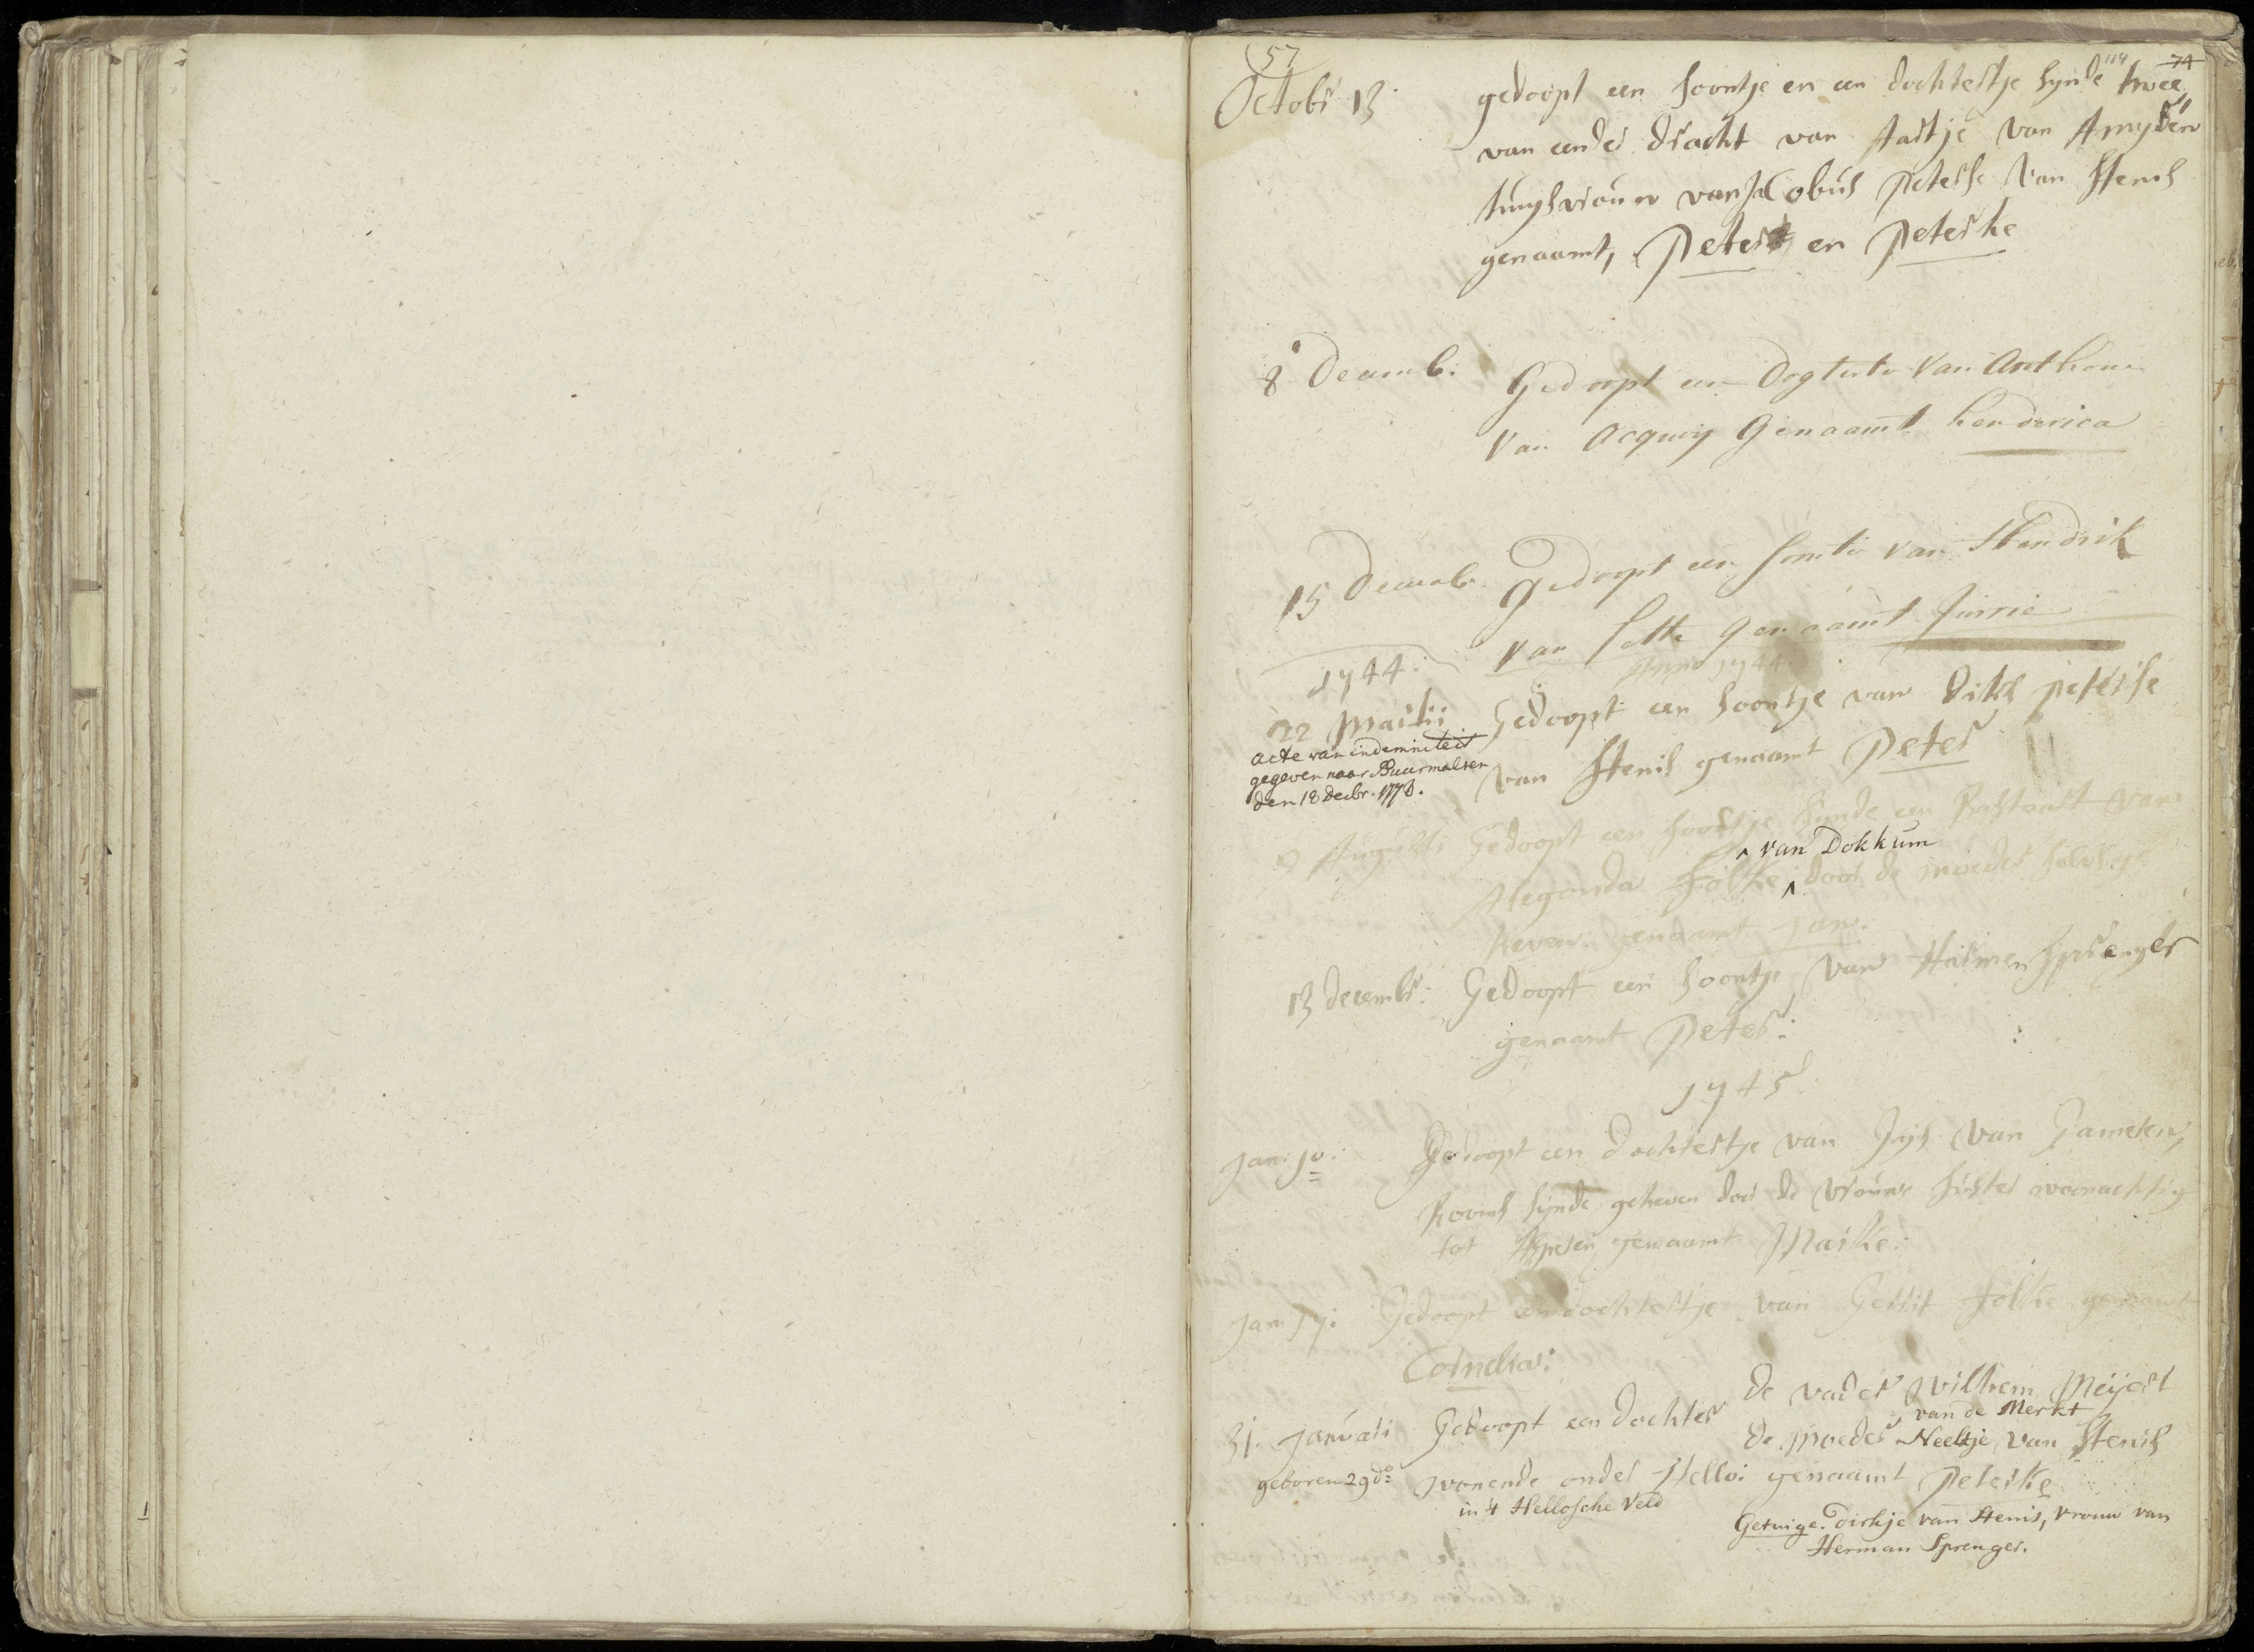 57
114 74
Octobr 13. gedoopt een soontje en een dochtertje sijnde twee
van eender dracht van Aartje van Amijden
huijsvrouw van Jacobus Peterse van Stenis
genaamt, Peter en Peterke
8 Decemb. Gedoopt een Dogterte van Anthonie
van Acquoij Genaamt henderica
15 Decemb. Gedoopt een sonte van Hendrik
van Sette Genaamt Jurrie
1744. Anno 1744
22 Martii Gedoopt een soontje van Dirk peterse
acte van indemniteit
gegeven naar Buurmalsen
den 18 Decbr. 1770.
van Stenis genaamt Peter
9 Augusti Gedoopt een soontje sijnde een Bastaart van
^ van Dokkum
Alegonda Folke ^ door de moeder selver ge
heven genaamt Jan.
13 decembr: Gedoopt een soontje van Harmen Sprenger
genaamt Peter:
1745
Jan: 10: Gedoopt een dochtertje van Gijs van Gameren,
Rooms sijnde geheven door de vrouws suster woonachtig
tot Asperen genaamt Maike:
Jan. 17: Gedoopt een dochtertje van Gerrit Folke genaamt
Cornelia:
de vader Wilhem Meijert
van de Merkt
31. Januari Gedoopt een dochter de moeder Neeltje van Stenis
geboren 29 do: wonende onder Hello: genaamt Peterke
in 't Hellosche Veld
Getuige. Dirkje van Stenis, vrouw van
Herman Sprenger.
1